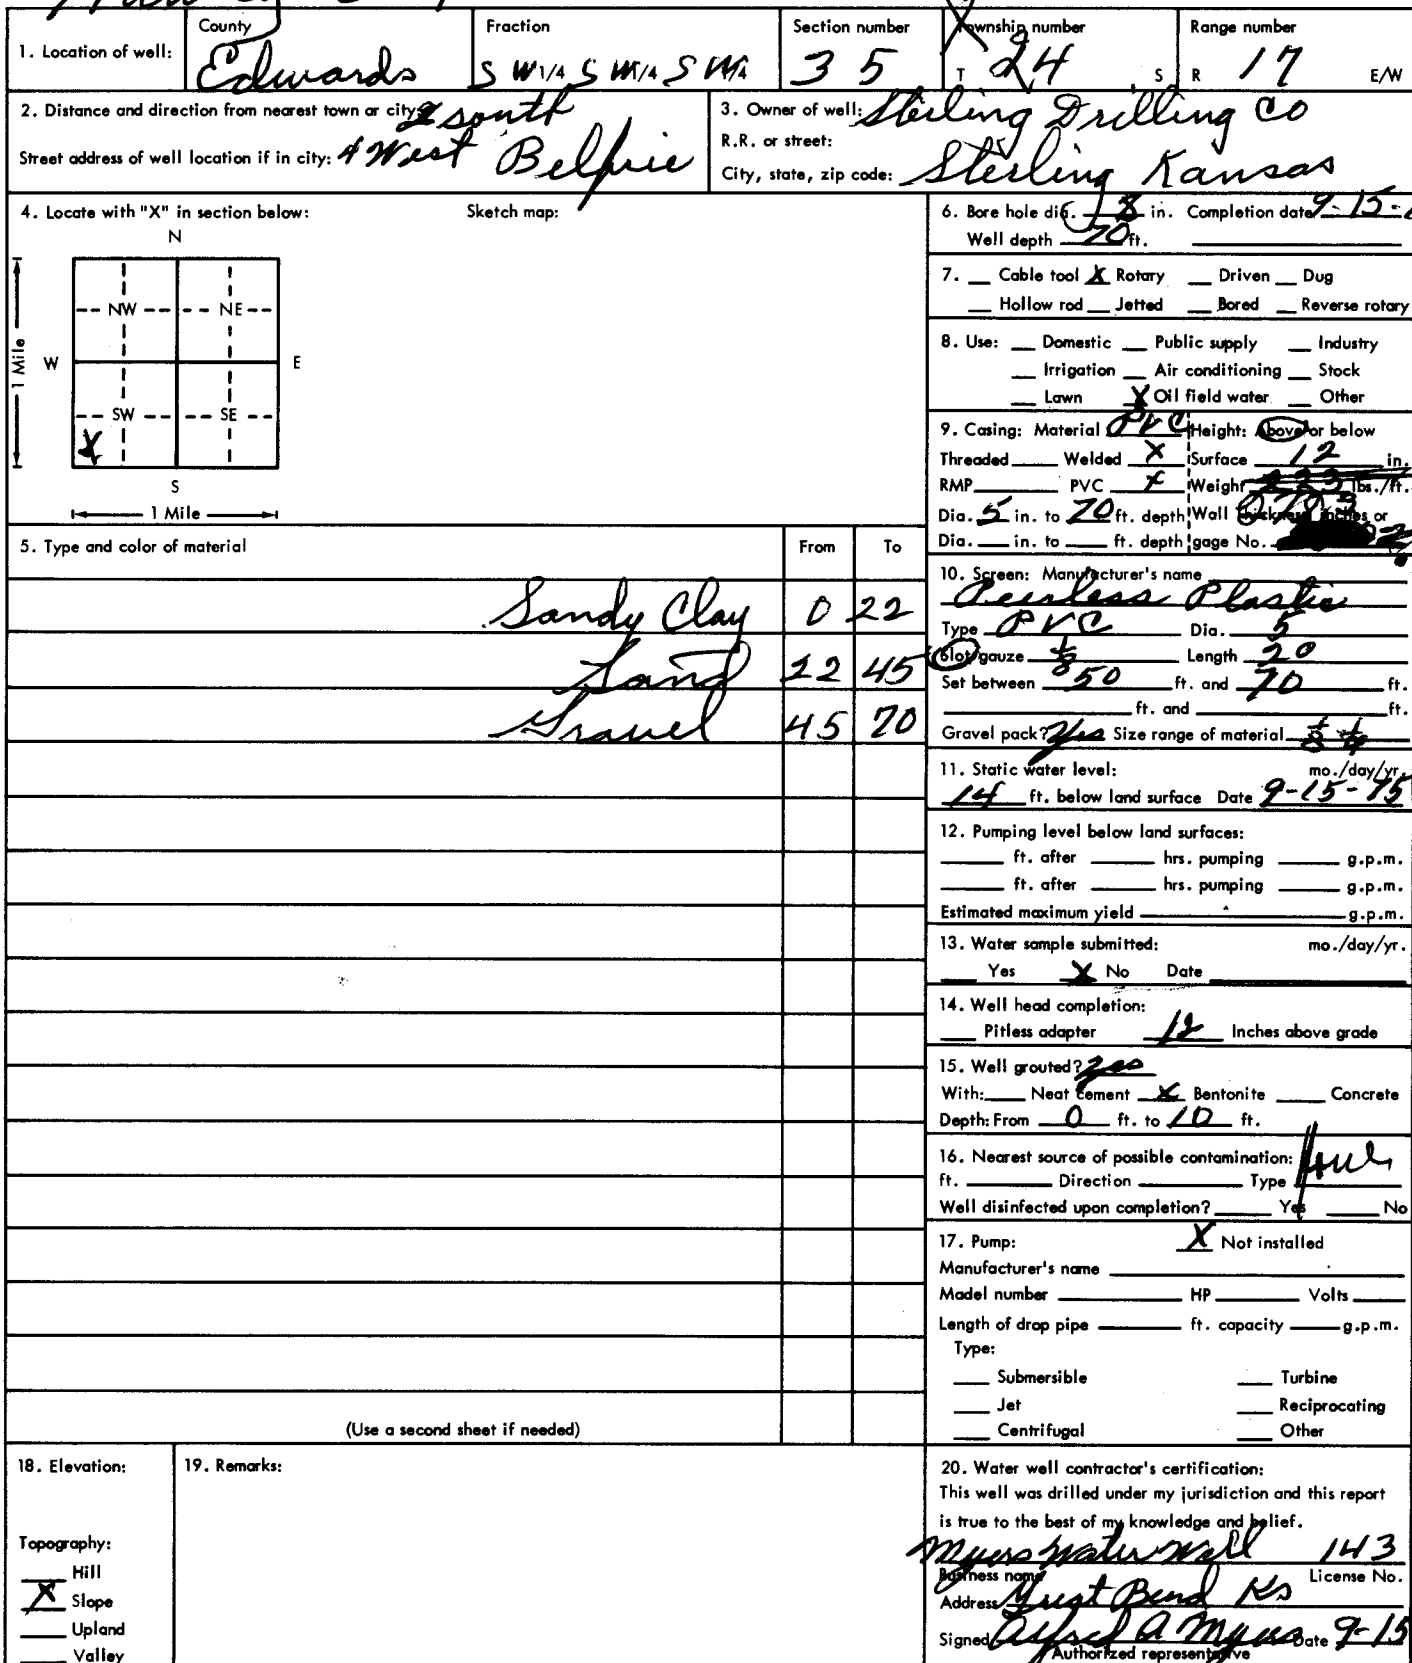 County Fraction Section number Township number Range number
1. Location of well: Edwards S W 1/4 S W 1/4 S W 1/4 3 5 T 24 S R 17 E/W
2. Distance and direction from nearest town or city: 2 south
Street address of well location if in city: 4 West Belpre
3. Owner of well: Sterling Drilling Co
R.R. or street:
City, state, zip code: Sterling Kansas
4. Locate with "X" in section below: Sketch map:
N
NW NE
W E
1 Mile
SW SE
X
S
1 Mile
5. Type and color of material From To
Sandy Clay 0 22
Sand 22 45
Gravel 45 70
(Use a second sheet if needed)
6. Bore hole dia. 8 in. Completion date 9-15-
Well depth 70 ft.
7. Cable tool X Rotary Driven Dug
Hollow rod Jetted Bored Reverse rotary
8. Use: Domestic Public supply Industry
Irrigation Air conditioning Stock
Lawn X Oil field water Other
9. Casing: Material PVC Height: Above or below
Threaded Welded X Surface 12 in.
RMP PVC X Weight lbs./ft.
Dia. 5 in. to 70 ft. depth Wall thickness inches or
Dia. in. to ft. depth gage No.
10. Screen: Manufacturer's name
Peerless Plastic
Type PVC Dia. 5
Slot/gauze 1/8 Length 20
Set between 50 ft. and 70 ft.
ft. and ft.
Gravel pack? Yes Size range of material
11. Static water level: mo./day/yr.
14 ft. below land surface Date 9-15-75
12. Pumping level below land surfaces:
ft. after hrs. pumping g.p.m.
ft. after hrs. pumping g.p.m.
Estimated maximum yield g.p.m.
13. Water sample submitted: mo./day/yr.
Yes X No Date
14. Well head completion:
Pitless adapter 12 Inches above grade
15. Well grouted? yes
With: Neat cement X Bentonite Concrete
Depth: From 0 ft. to 10 ft.
16. Nearest source of possible contamination:
ft. Direction Type
Well disinfected upon completion? Yes No
17. Pump: X Not installed
Manufacturer's name
Model number HP Volts
Length of drop pipe ft. capacity g.p.m.
Type:
Submersible Turbine
Jet Reciprocating
Centrifugal Other
18. Elevation:
Topography:
Hill
X Slope
Upland
Valley
19. Remarks:
20. Water well contractor's certification:
This well was drilled under my jurisdiction and this report
is true to the best of my knowledge and belief.
Myers Water Well 143
Business name License No.
Address Great Bend Ks
Signed Alfred A Myers Date 9-15
Authorized representative